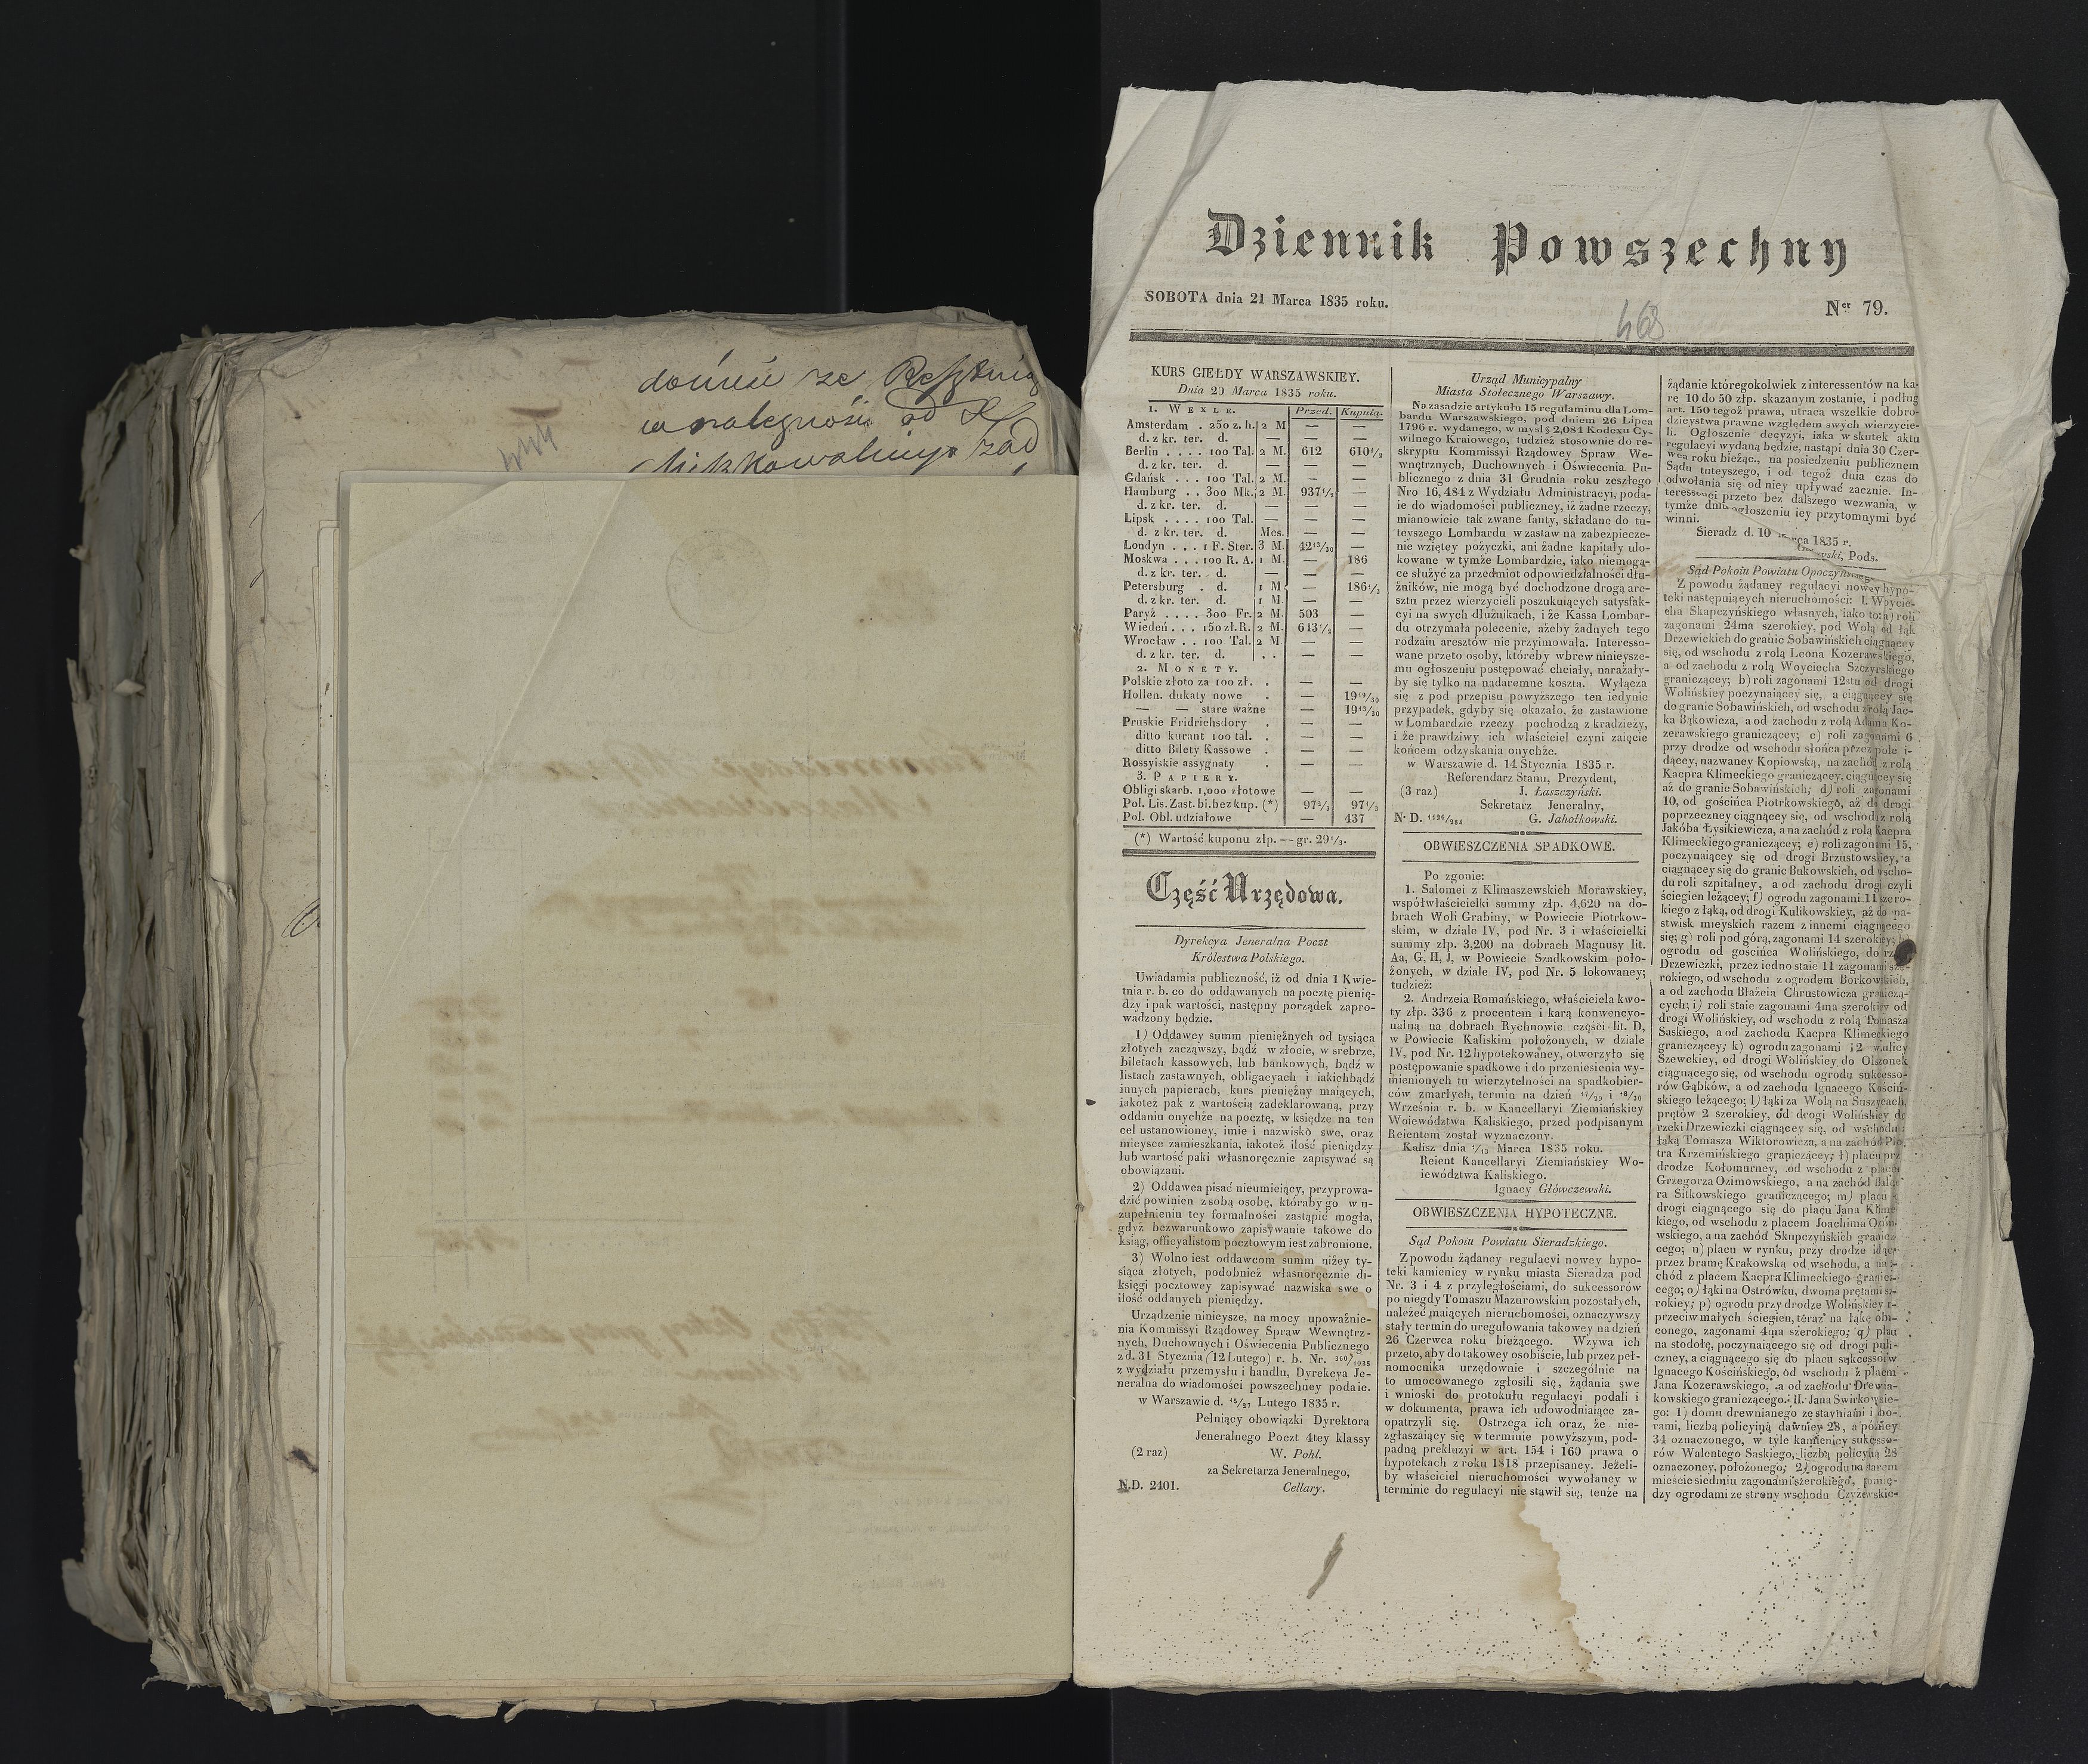 donieść ze
w należności od
zad
Dziennik Powszechny
SOBOTA dnia 21 Marca 1835 roku.
468
Ner 79.
KURS GIEŁDY WARSZAWSKIEY.
Dnia 20 Marca 1835 roku.
1. WEXLE. Przed. Kupuią.
Amsterdam . 250 z. h. 2 M — —
d. z kr. ter. d. — — —
Berlin . . . . 100 Tal. 2 M. 612 610 1/3
d. z kr. ter. d. — — —
Gdańsk . . . 100 Tal. 2 M. — —
Hamburg . . 300 Mk. 2 M. 937 1/3 —
d. z kr. ter. d. — —
Lipsk . . . . 100 Tal. — — —
d. z kr. ter. d. Mes. — —
Londyn . . . 1 F. Ster. 3 M. 42 13/30 —
Moskwa . . . 100 R. A. 1 M. — 186
d. z kr. ter. d. — — —
Petersburg . d. 1 M — 186 1/3
d. z kr. ter. d. 1 M. — —
Paryż . . . . 300 Fr. 2 M. 503 —
Wiedeń . . . 150 zł. R. 2 M. 643 1/3 —
Wrocław . . 100 Tal. 2 M. — —
d. z kr. ter. d. . . — —
2. MONETY.
Polskie złoto za 100 zł. . — —
Hollen. dukaty nowe . — 19 19/30
— — stare ważne — 19 13/30
Pruskie Fridrichsdory . — —
ditto kurant 100 tal. . — —
ditto Bilety Kassowe . — —
Rossyiskie assygnaty . — —
3. PAPIERY.
Obligi skarb. 1,000 złotowe — —
Pol. Lis. Zast. bi. bez kup. (*) 97 2/3 97 1/3
Pol. Obl. udziałowe — 437
(*) Wartość kuponu złp. — gr. 29 1/3.
Część Urzędowa.
Dyrekcya Jeneralna Poczt
Królestwa Polskiego.
Uwiadamia publiczność, iż od dnia 1 Kwie-
tnia r. b. co do oddawanych na pocztę pienię-
dzy i pak wartości, następny porządek zapro-
wadzony będzie.
1) Oddawcy summ pieniężnych od tysiąca
złotych zacząwszy, bądź w złocie, w srebrze,
biletach kassowych, lub bankowych, bądź w
listach zastawnych, obligacyach i iakichbądź
innych papierach, kurs pieniężny maiących,
iakoteż pak z wartością zadeklarowaną, przy
oddaniu onychże na pocztę, w księdze na ten
cel ustanowioney, imie i nazwisko swe, oraz
mieysce zamieszkania, iakoteż ilość pieniędzy
lub wartość paki własnoręcznie zapisywać są
obowiązani.
2) Oddawca pisać nieumieiący, przyprowa-
dzić powinien z sobą osobę, któraby go w u-
zupełnieniu tey formalności zastąpić mogła,
gdyż bezwarunkowo zapisywanie takowe do
ksiąg, officyalistom pocztowym iest zabronione.
3) Wolno iest oddawcom summ niżey ty-
siąca złotych, podobnież własnoręcznie do
księgi pocztowey zapisywać nazwiska swe o
ilość oddanych pieniędzy.
Urządzenie ninieysze, na mocy upoważnie-
nia Kommissyi Rządowey Spraw Wewnętrz-
nych, Duchownych i Oświecenia Publicznego
z d. 31 Stycznia (12 Lutego) r. b. Nr. 360/1035
z wydziału przemysłu i handlu, Dyrekcya Je-
neralna do wiadomości powszechney podaie.
w Warszawie d. 15/27 Lutego 1835 r.
Pełniący obowiązki Dyrektora
Jeneralnego Poczt 4tey klassy
(2 raz) W. Pohl.
za Sekretarza Jeneralnego,
N.D. 2401. Cellary.
Urząd Municypalny
Miasta Stołecznego Warszawy.
Na zasadzie artykułu 15 regulaminu dla Lom-
bardu Warszawskiego, pod dniem 26 Lipca
1796 r. wydanego, w myśl § 2,084 Kodexu Cy-
wilnego Kraiowego, tudzież stosownie do re-
skryptu Kommissyi Rządowey Spraw We-
wnętrznych, Duchownych i Oświecenia Pu-
blicznego z dnia 31 Grudnia roku zeszłego
Nro 16,484 z Wydziału Administracyi, poda-
ie do wiadomości publiczney, iż żadne rzeczy,
mianowicie tak zwane fanty, składane do tu-
teyszego Lombardu w zastaw na zabezpiecze-
nie wziętey pożyczki, ani żadne kapitały ulo-
kowane w tymże Lombardzie, iako niemogą-
ce służyć za przedmiot odpowiedzialności dłu-
żników, nie mogą być dochodzone drogą are-
sztu przez wierzycieli poszukuiących satysfak-
cyi na swych dłużnikach, i że Kassa Lombar-
du otrzymała polecenie, ażeby żadnych tego
rodzaiu aresztów nie przyimowała. Interesso-
wane przeto osoby, któreby wbrew ninieysze-
mu ogłoszeniu postępować chciały, narażały-
by się tylko na nadaremne koszta. Wyłącza
się z pod przepisu powyższego ten iedynie
przypadek, gdyby się okazało, że zastawione
w Lombardzie rzeczy pochodzą z kradzieży,
i że prawdziwy ich właściciel czyni zaięcie
końcem odzyskania onychże.
w Warszawie d. 14 Stycznia 1835 r.
Referendarz Stanu, Prezydent,
(3 raz) J. Łaszczyński.
Sekretarz Jeneralny,
N. D. 1126/284 G. Jahołkowski.
OBWIESZCZENIA SPADKOWE.
Po zgonie:
1. Salomei z Klimaszewskich Morawskiey,
współwłaścicielki summy złp. 4,620 na do-
brach Woli Grabiny, w Powiecie Piotrkow-
skim, w dziale IV, pod Nr. 3 i właścicielki
summy złp. 3,200 na dobrach Magnusy lit.
Aa, G, H, J, w Powiecie Szadkowskim poło-
żonych, w dziale IV, pod Nr. 5 lokowaney;
tudzież:
2. Andrzeia Romańskiego, właściciela kwo-
ty złp. 336 z procentem i karą konwencyo-
nalną na dobrach Rychnowie części lit. D,
w Powiecie Kaliskim położonych, w dziale
IV, pod Nr. 12 hypotekowaney, otworzyło się
postępowanie spadkowe i do przeniesienia wy-
mienionych tu wierzytelności na spadkobier-
ców zmarłych, termin na dzień 17/29 i 18/30
Września r. b. w Kancellaryi Ziemiańskiey
Woiewództwa Kaliskiego, przed podpisanym
Reientem został wyznaczony.
Kalisz dnia 1/13 Marca 1835 roku.
Reient Kancellaryi Ziemiańskiey Wo-
iewództwa Kaliskiego.
Ignacy Główczewski.
OBWIESZCZENIA HYPOTECZNE.
Sąd Pokoiu Powiatu Sieradzkiego.
Z powodu żądaney regulacyi nowey hypo-
teki kamienicy w rynku miasta Sieradza pod
Nr. 3 i 4 z przyległościami, do sukcessorów
po niegdy Tomaszu Mazurowskim pozostałych,
należeć maiących nieruchomości, oznaczywszy
stały termin do uregulowania takowey na dzień
26 Czerwca roku bieżącego. Wzywa ich
przeto, aby do takowey osobiście, lub przez peł-
nomocnika urzędownie i szczególnie na
to umocowanego zgłosili się, żądania swe
i wnioski do protokułu regulacyi podali i
w dokumenta, prawa ich udowodniaiące za-
opatrzyli się. Ostrzega ich oraz, że nie-
zgłaszaiący się w terminie powyższym, pod-
padną prekluzyi w art. 154 i 160 prawa o
hypotekach z roku 1818 przepisaney. Jeżeli-
by właściciel nieruchomości wywołaney w
terminie do regulacyi nie stawił się, tenże na
żądanie któregokolwiek z interessentów na ka-
rę 10 do 50 złp. skazanym zostanie, i podług
art. 150 tegoż prawa, utraca wszelkie dobro-
dzieystwa prawne względem swych wierzycie-
li. Ogłoszenie decyzyi, iaka w skutek aktu
regulacyi wydaną będzie, nastąpi dnia 30 Czer-
wca roku bieżąc., na posiedzeniu publicznem
Sądu tuteyszego, i od tegoż dnia czas do
odwołania się od niey upływać zacznie. In-
teressenci przeto bez dalszego wezwania, w
tymże dniu ogłoszeniu iey przytomnymi być
winni.
Sieradz d. 10 Marca 1835 r.
Pods.
Sąd Pokoiu Powiatu
Z powodu żądaney regulacyi nowey hypo-
teki następuiących nieruchomości: I. Woycie-
cha Skapczyńskiego własnych, iako to: a) roli
zagonami 24ma szerokiey, pod Wolą od łąk
Drzewickich do granic Sobawińskich ciągnącey
się, od wschodu z rolą Leona Kozerawskiego,
a od zachodu z rolą Woyciecha Szczyrskiego
graniczącey; b) roli zagonami 12stu od drogi
Wolińskiey poczynaiącey się, a ciągnącey się
do granic Sobawińskich, od wschodu z rolą Jac-
ka Bąkowicza, a od zachodu z rolą Adama Ko-
zerawskiego graniczącey; c) roli zagonami 6
przy drodze od wschodu słońca przez pole i-
dącey, nazwaney Kopiowską, na zachod z rolą
Kacpra Klimeckiego graniczącey, ciągnącey się
aż do granic Sobawińskich; d) roli zagonami
10, od gościńca Piotrkowskiego, aż do drogi
poprzeczney ciągnącey się, od wschodu z rolą
Jakóba Łysikiewicza, a na zachód z rolą Kacpra
Klimeckiego graniczącey; e) roli zagonami 15,
poczynaiącey się od drogi Brzustowskiey, a
ciągnącey się do granic Bukowskich, od wscho-
du roli szpitalney, a od zachodu drogi czyli
ściegien leżącey; f) ogrodu zagonami 11 szero-
kiego z łąką, od drogi Kulikowskiey, aż do pa-
stwisk mieyskich razem z innemi ciągnącego
się; g) roli pod górą, zagonami 14 szerokiey;
ogrodu od gościńca Wolińskiego, do
Drzewiczki, przez iedno staie 11 zagonami sze-
rokiego, od wschodu z ogrodem Borkowskich,
a od zachodu Błażeia Chrustowicza graniczą-
cych; i) roli staie zagonami 4ma szerokiey od
drogi Wolińskiey, od wschodu z rolą Tomasza
Saskiego, a od zachodu Kacpra Klimeckiego
graniczącey; k) ogrodu zagonami 12 w ulicy
Szewckiey, od drogi Wolińskiey do Olszonek
ciągnącego się, od wschodu ogrodu sukcesso-
rów Gąbków, a od zachodu Ignacego Kościń-
skiego leżącego; l) łąki za Wolą na Suszycach,
prętów 2 szerokiey, od drogi Wolińskiey do
rzeki Drzewiczki ciągnącey się, od wschodu
łąką Tomasza Wiktorowicza, a na zachód Pio-
tra Krzemińskiego graniczącey; ł) placu przy
drodze Kołomurney, od wschodu z placem
Grzegorza Ozimowskiego, a na zachód
ra Sitkowskiego graniczącego; m) placu
drogi ciągnącego się do placu Jana Klime-
kiego, od wschodu z placem Joachima Ozim-
wskiego, a na zachód Skupczyńskich granicz-
cego; n) placu w rynku, przy drodze idąc
przez bramę Krakowską od wschodu, a na z-
chód z placem Kacpra Klimeckiego granicz-
cego; o) łąki na Ostrówku, dwoma prętami sz-
rokiey; p) ogrodu przy drodze Wolińskiey
przeciw małych ściegien, teraz na łąkę obr-
conego, zagonami 4ma szerokiego; q) placu
na stodołę, poczynaiącego się od drogi puli-
czney, a ciągnącego się do placu sukcessorów
Ignacego Kościńskiego, od wschodu z placem
Jana Kozerawskiego, a od zachodu Drewia-
kowskiego graniczącego. II. Jana Swirkowskie-
go: 1) domu drewnianego ze stayniami i obo-
rami, liczbą policyiną dawniey 28, a późniey
34 oznaczonego, w tyle kamienicy sukcesso-
rów Walentego Saskiego, liczbą policyiną 28
oznaczoney, położonego; 2) ogrodu na starem
mieście siedmiu zagonami szerokiego, pomię-
dzy ogrodami ze strony wschodu Czyżewskie-